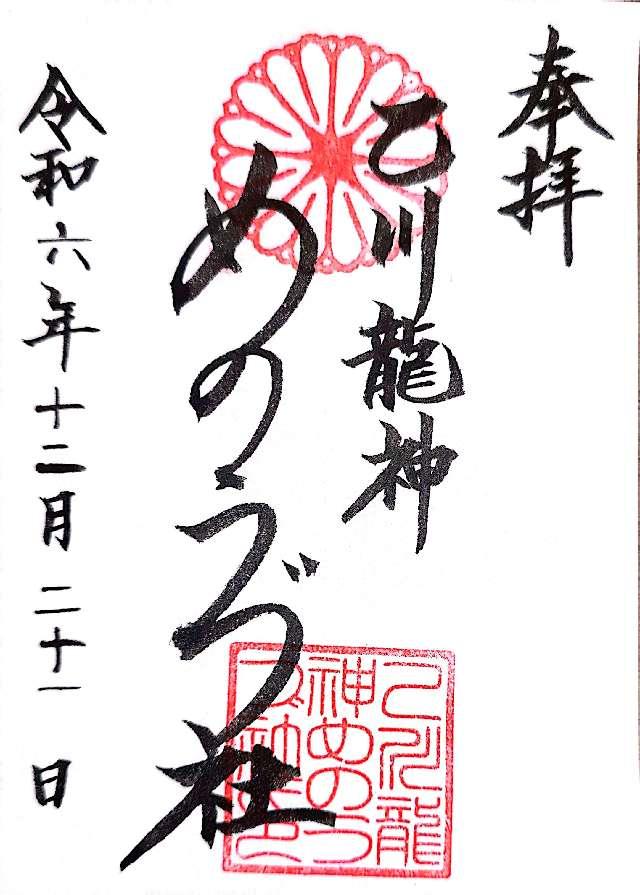 奉拝
乙川龍神
めのうづ社
令和六年十二月二十一日
乙川龍
神めのう
づ社